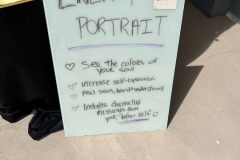 ENERGY
PORTRAIT
♡ See the colors of
your soul
♡ increase self-expression
♡ Feel seen, heard & understood
♡ Includes channeled
messages from
your higher self